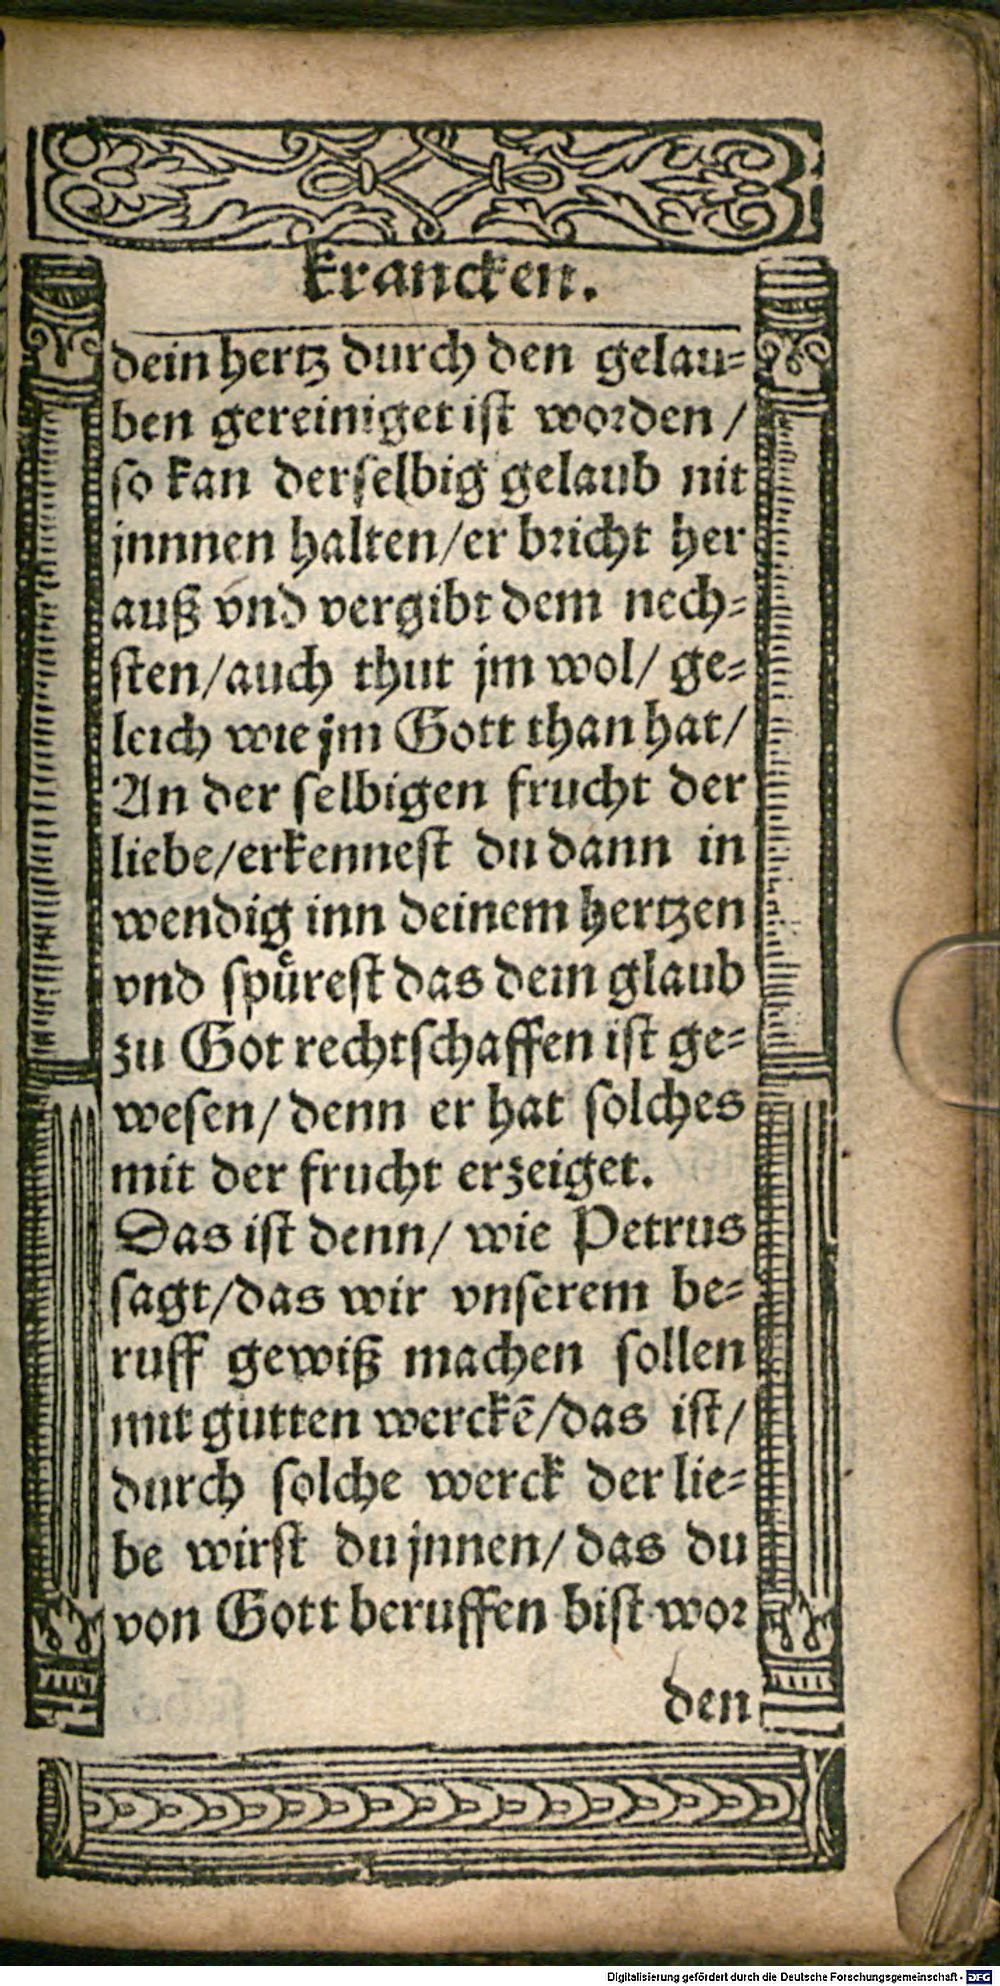 krancken.
dein hertz durch den gelau⸗
ben gereiniget ist worden /
so kan derselbig gelaub nit
jnnnen halten/er bricht her
auß vnd vergibt dem nech⸗
sten/auch thut jm wol/ ge⸗
leich wie jm Gott than hat/
An der selbigen frucht der
liebe/erkennest du dann in
wendig inn deinem hertzen
vnd spuͤrest das dein glaub
zu Got rechtschaffen ist ge⸗
wesen/ denn er hat solches
mit der frucht erzeiget.
Das ist denn/ wie Petrus
sagt/das wir vnserem be⸗
ruff gewiß machen sollen
mit gutten werckē/das ist/
durch solche werck der lie⸗
be wirst du jnnen/ das du
von Gott beruffen bist wor
den
Digitalisierung gefördert durch die Deutsche Forschungsgemeinschaft - DFG